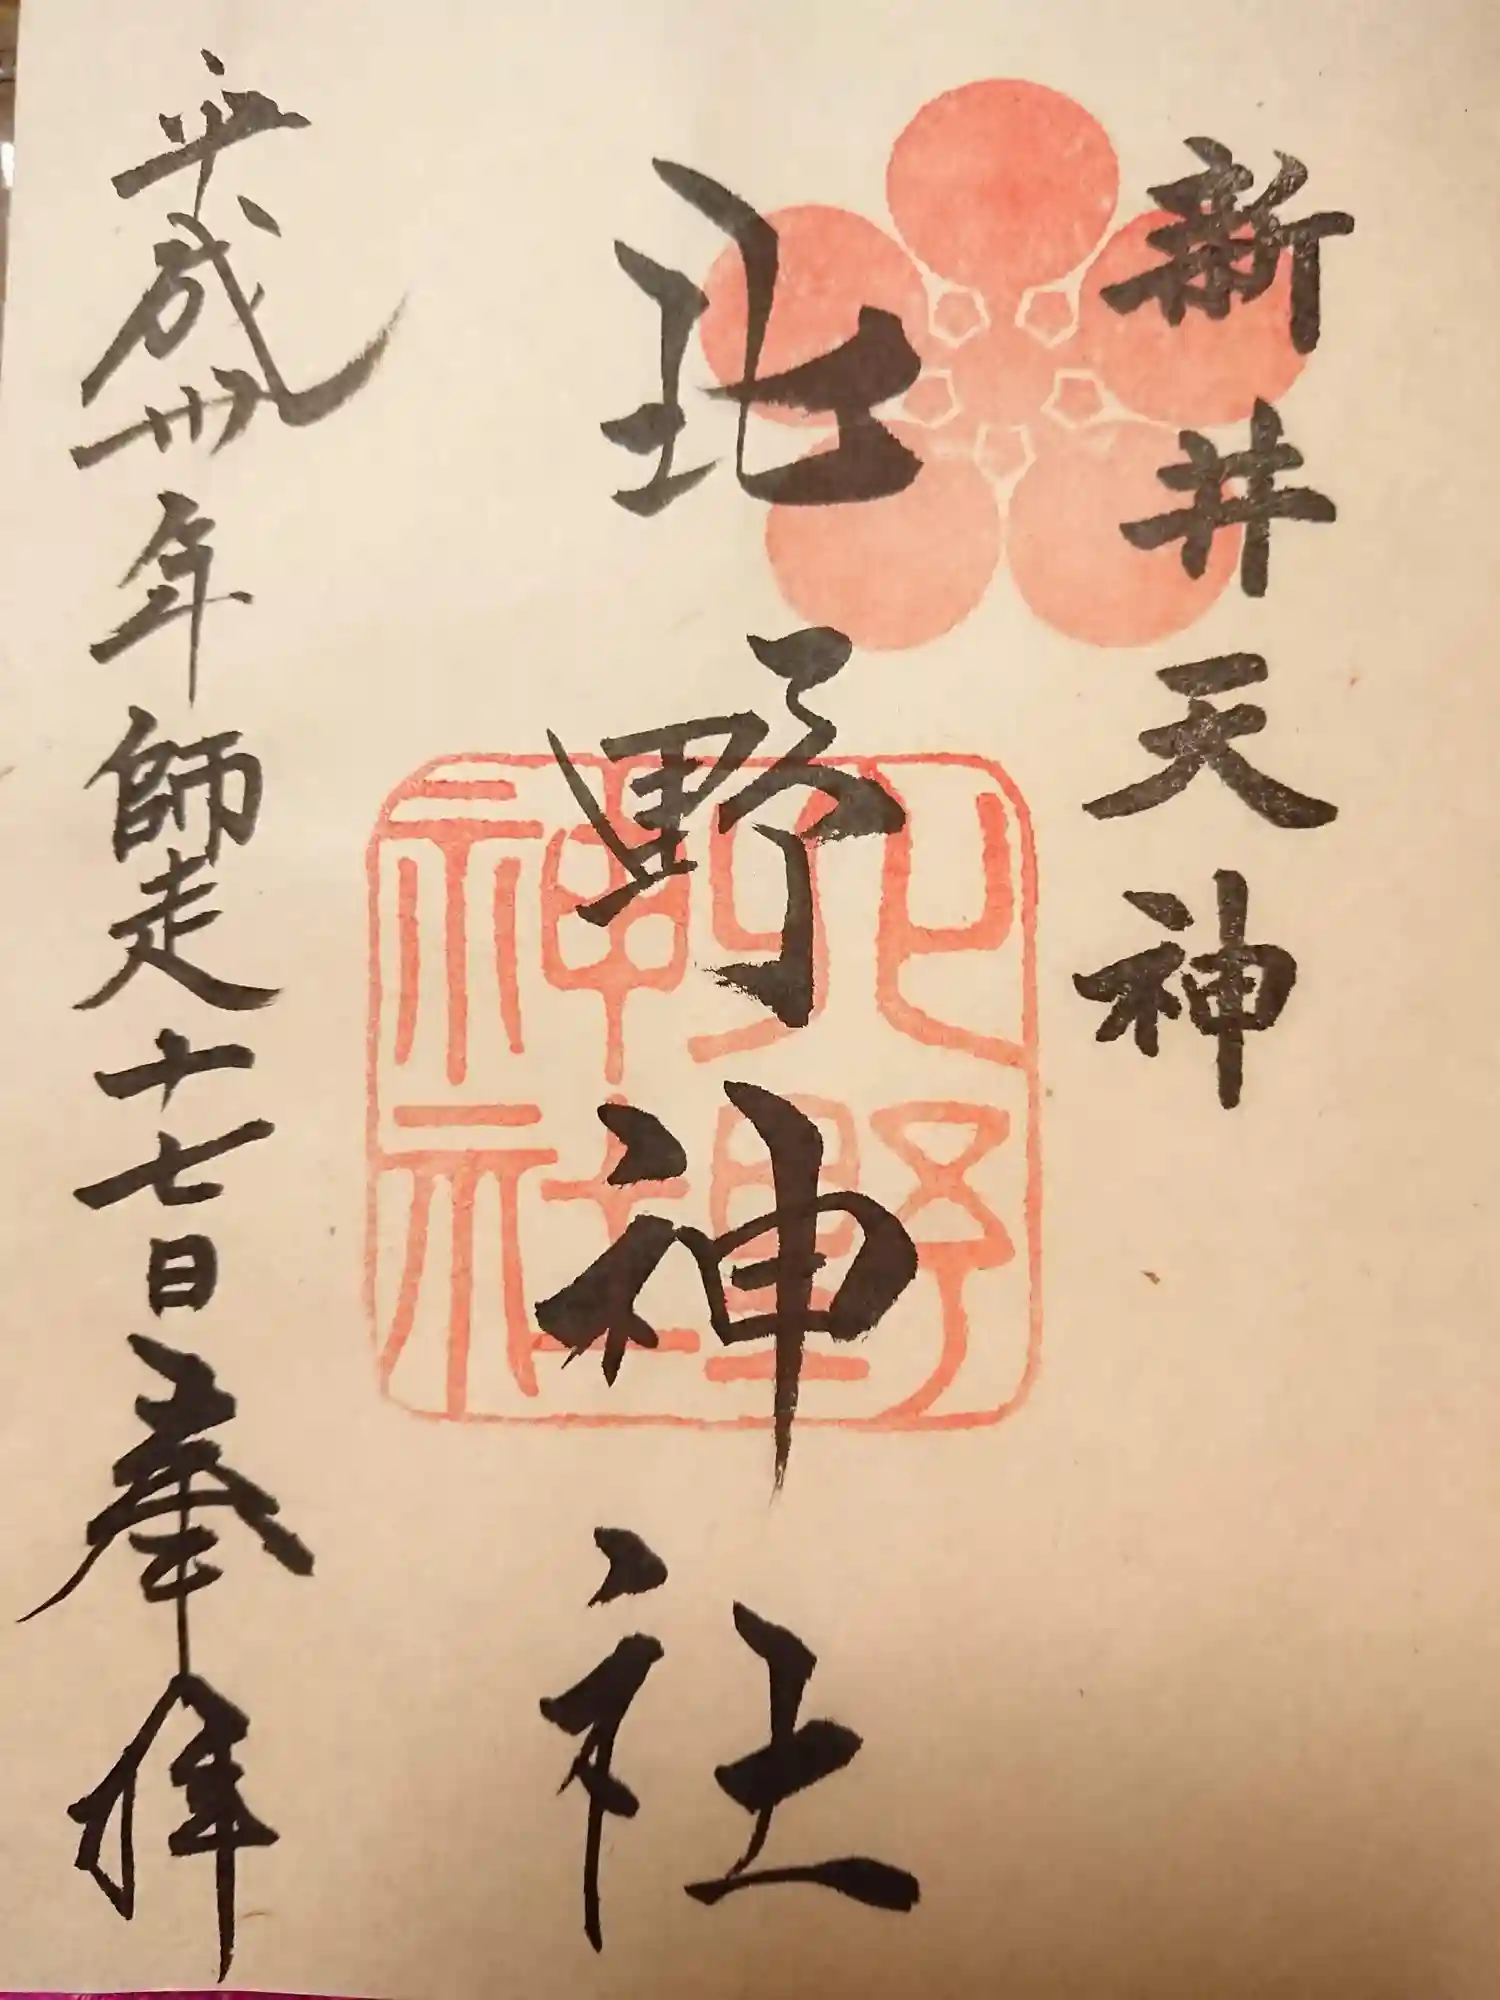 新井天神
北野神社
平成卅年師走十七日奉拝
北野神社